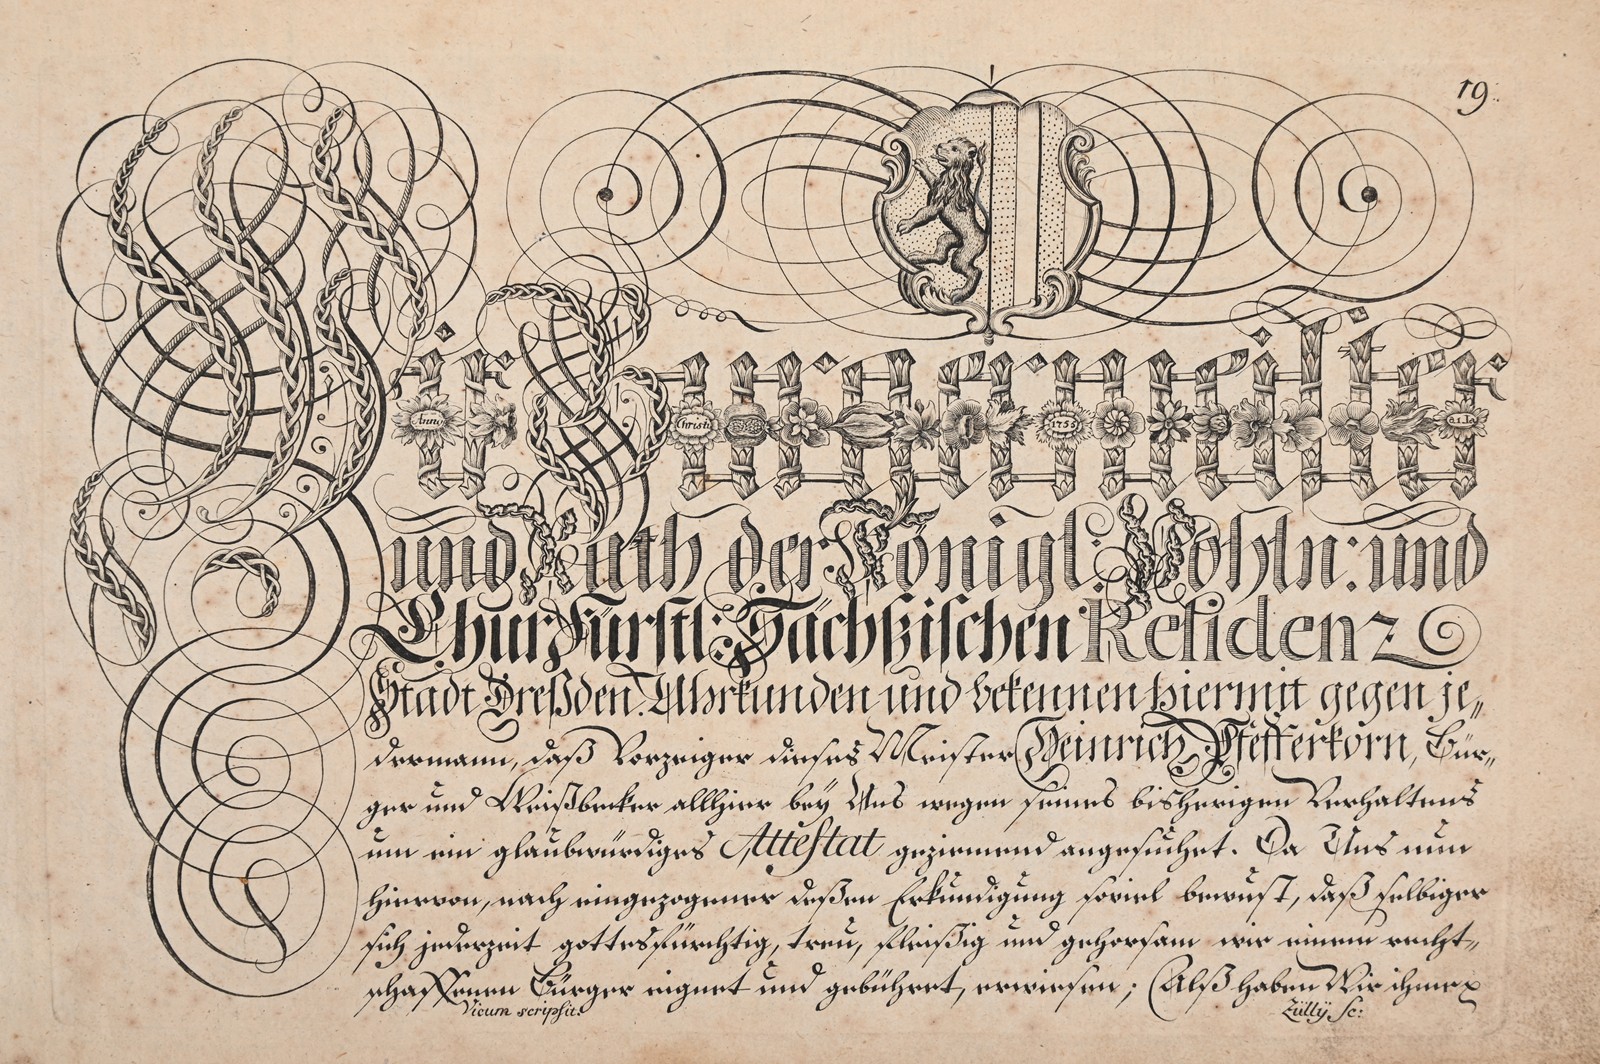 19.
Wir Burgermeister
Anno Christi 1755
und Rath der Königl: Pohln: und
ChurFürstl: Sächßischen Residenz
Stadt Dreßden. Uhrkunden und bekennen hiermit gegen je„
dermann, daß Vorzeiger dieses Meister Heinrich Pfefferkorn, Bür„
ger und Weißbecker allhier bey Uns wegen seines bisherigen Verhaltens
um ein glaubwürdiges Attestat geziemend angesuchet. Da Uns nun
hiervon, nach eingezogener deßen Erkundigung soviel bewust, daß selbiger
sich jederzeit gottesfürchtig, treu, fleißig und gehorsam wie einem recht„
schaffenen Bürger eignet und gebühret, erwiesen; Alß haben Wir ihme
Vicum scripsit.
Züllÿ Sc: